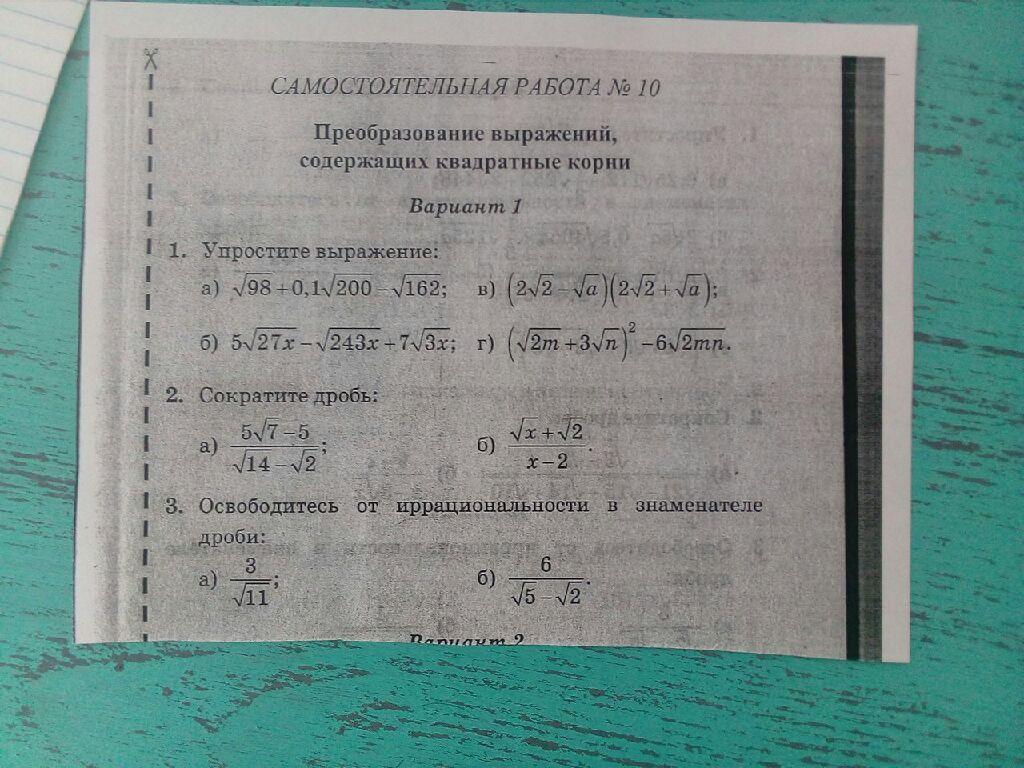 САМОСТОЯТЕЛЬНАЯ РАБОТА № 10
Преобразование выражений,
содержащих квадратные корни
Вариант 1
1. Упростите выражение:
а) √98+0,1√200−√162; в) (2√2−√a)(2√2+√a);
б) 5√27x−√243x+7√3x; г) (√2m+3√n)²−6√2mn.
2. Сократите дробь:
а) (5√7−5)/(√14−√2); б) (√x+√2)/(x−2).
3. Освободитесь от иррациональности в знаменателе
дроби:
а) 3/√11; б) 6/(√5−√2).
Вариант 2